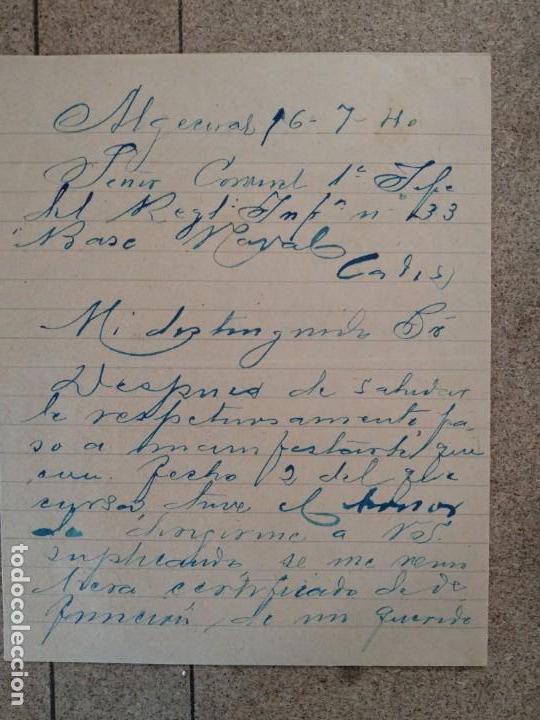 Algeciras 16-7-40
Señor Coronel 1º Jefe
del Regtº Infª nº 33
Base Naval
Cadis
Mi distinguido Sr
Despues de saludar
le respetuosamente pa
so a manifestarle que
con fecha 2 del que
cursa, tuve el honor
de dirigirme a VS.
suplicando se me remi
tiera certificado de de
función, de un querido
todocoleccion.net